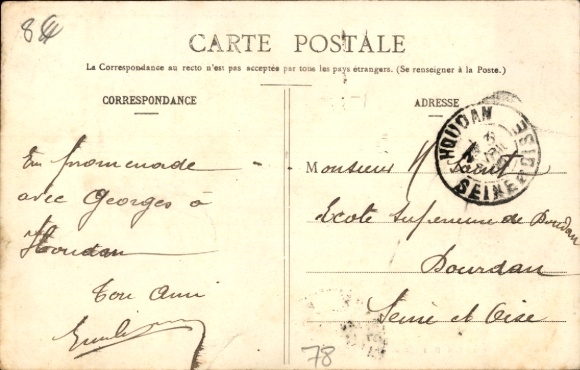 84
CARTE POSTALE
La Correspondance au recto n'est pas acceptée par tous les pays étrangers. (Se renseigner à la Poste.)
CORRESPONDANCE
ADRESSE
En promenade
avec Georges à
Houdan
Ton ami
Emile
Monsieur
Ecole Supérieure de Dourdan
Dourdan
Seine et Oise
HOUDAN
SEINE & OISE
78